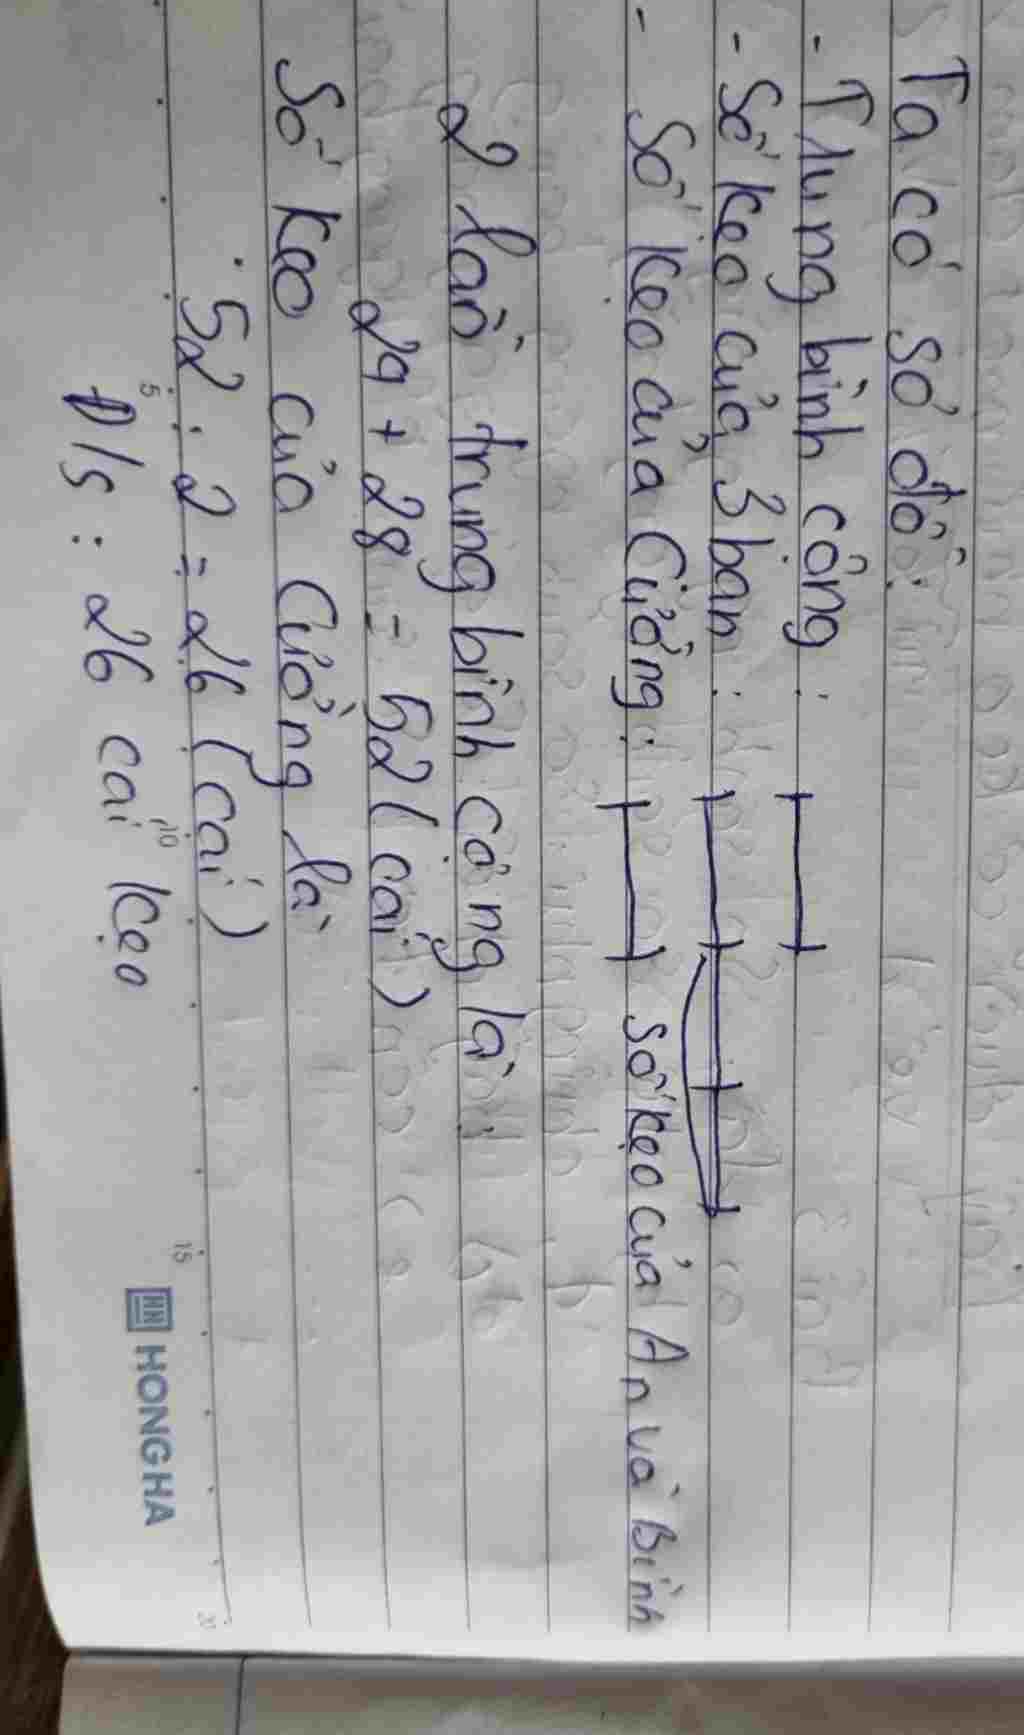 Ta có sơ đồ:
- Trung bình cộng:
- Số kẹo của 3 bạn:
- Số kẹo của Cường:
Số kẹo của An và Bình
2 lần trung bình cộng là
24 + 28 = 52 (cái)
Số kẹo của Cường là
52 : 2 = 26 (cái)
Đ/s: 26 cái kẹo
5
10
15
20
HH HONG HA